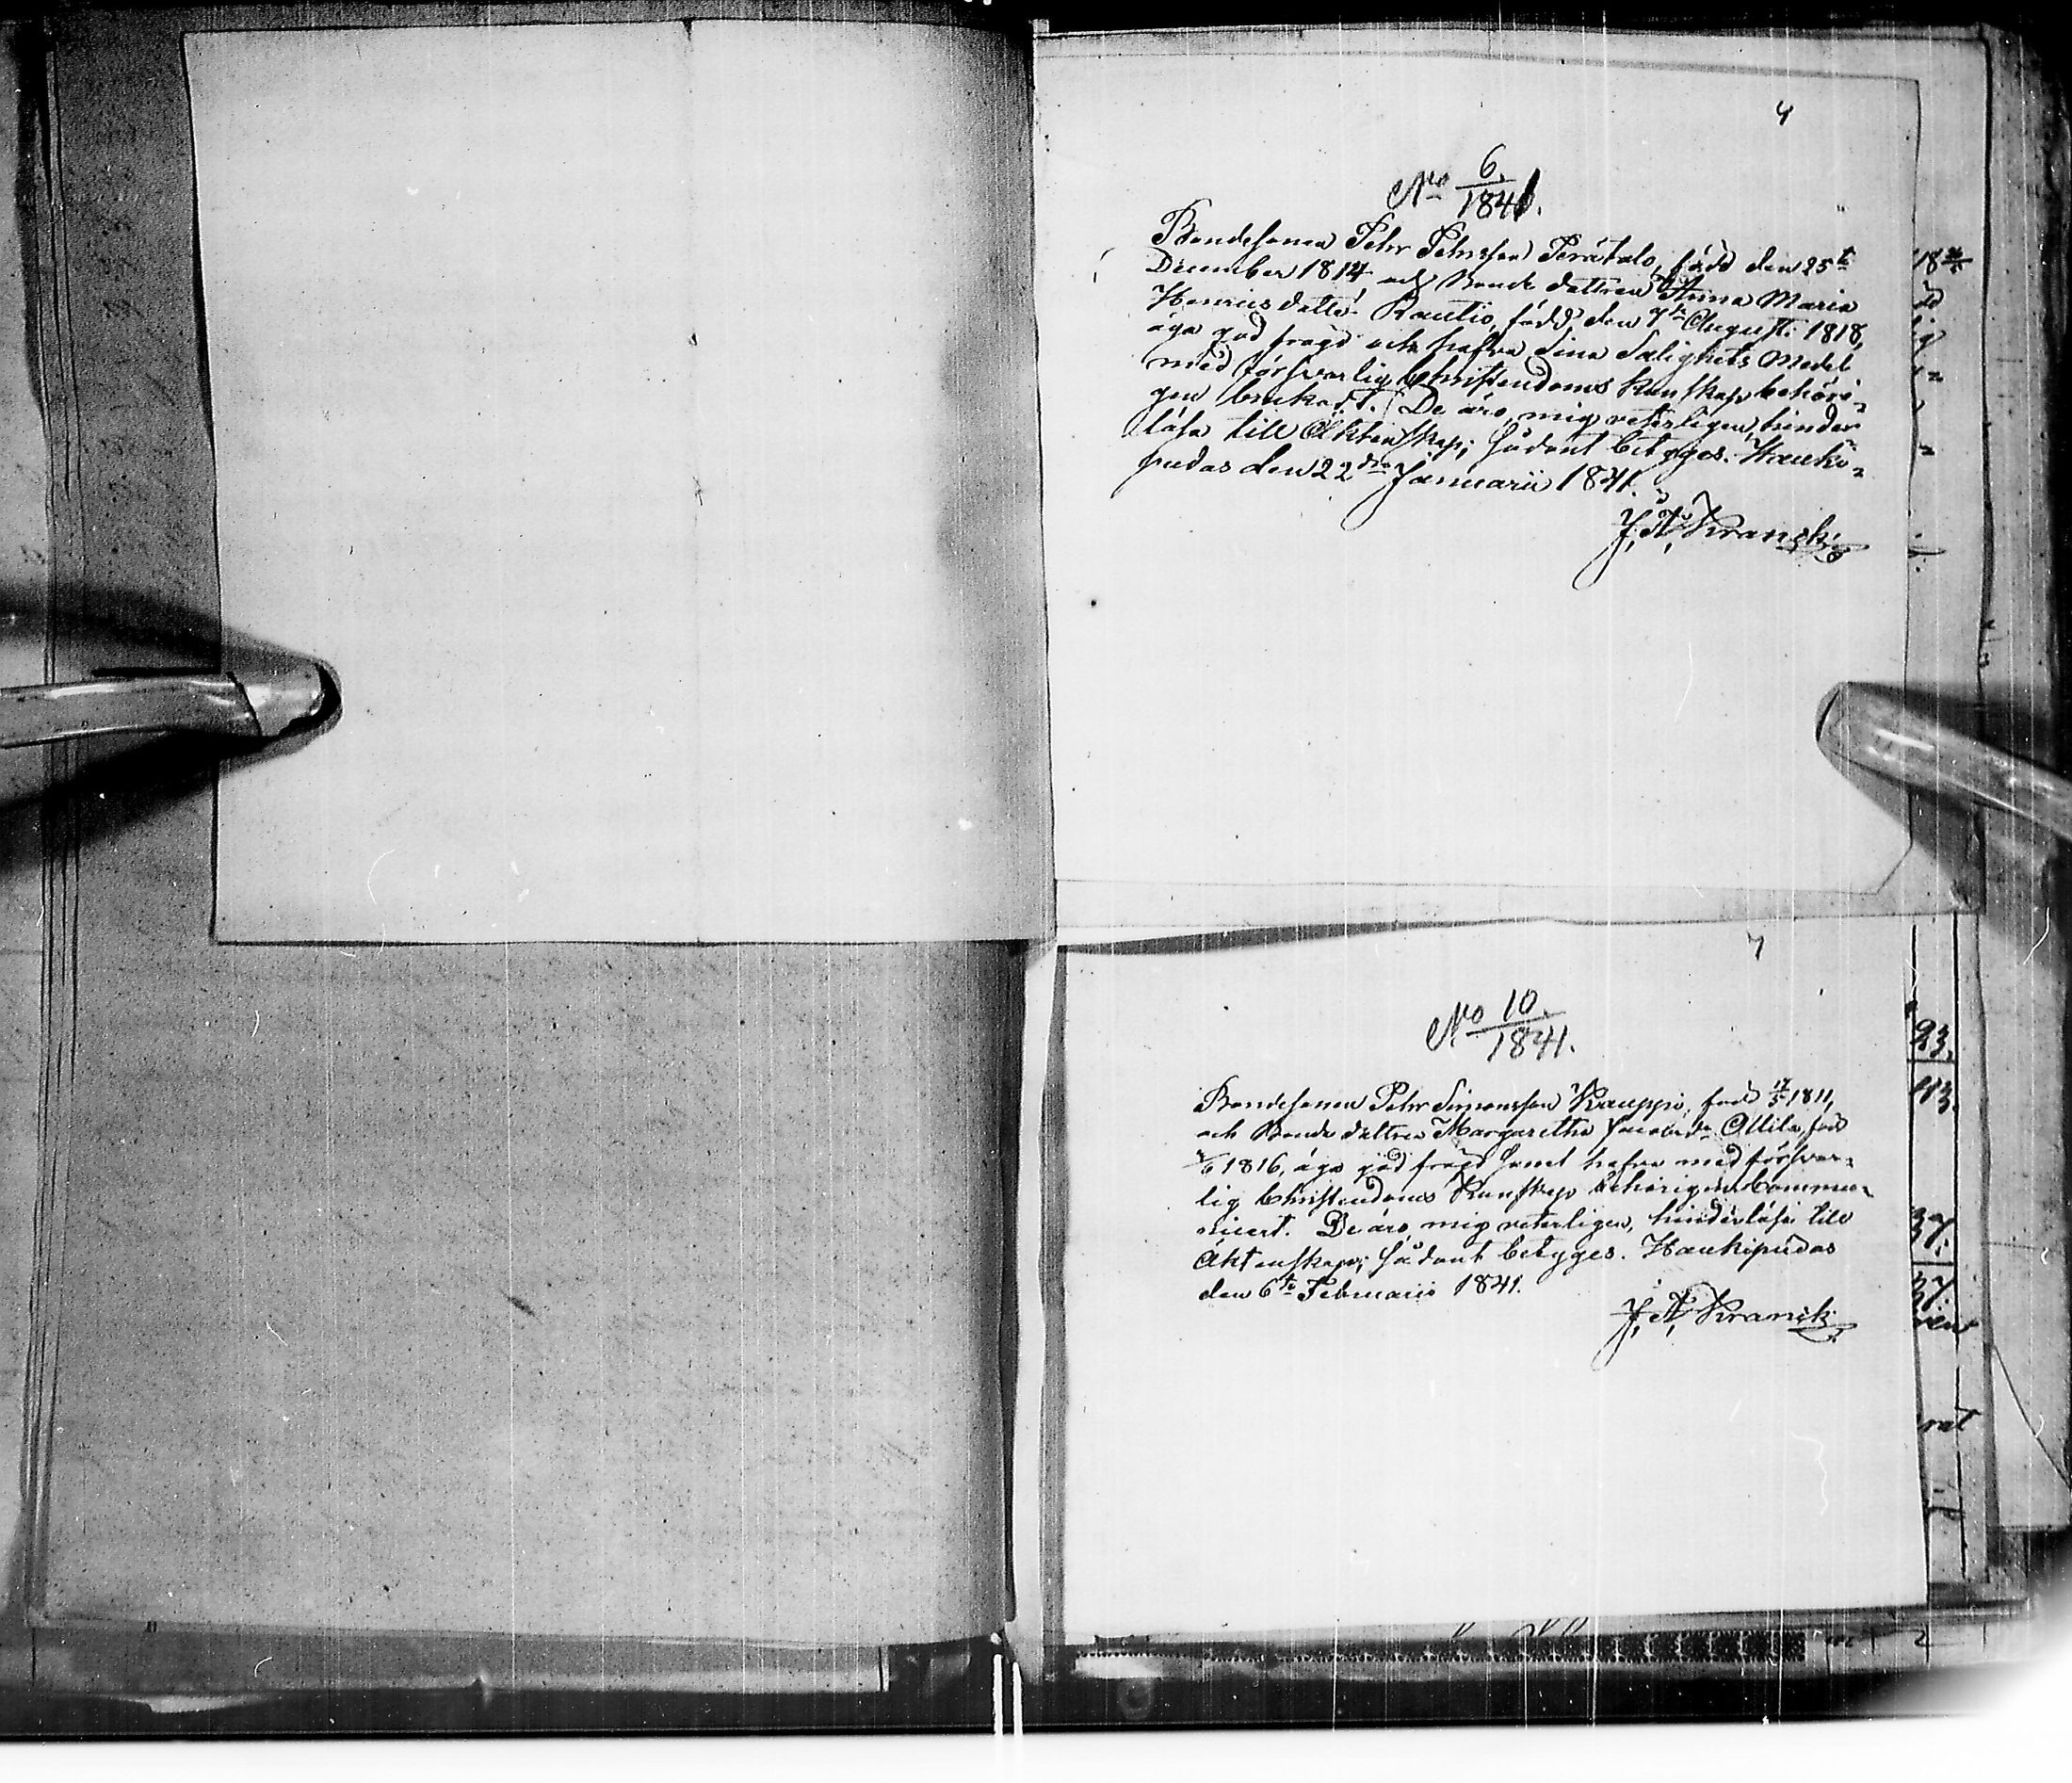 4
No 6./1841.
Bondesonen Pehr Pehrsson Perätalo, född den 25te
December 1814, och Bonde dottren Anna Maria
Henriks dotter Rautio, född den 7de Augusti 1818,
äga god frägd och hafva sina Salighets Medel
med försvarlig Christendoms kunskap behöri-
gen brukadt. De äro, mig veterligen, hinder
lösa till Äktenskap; sådant betyges. Hauki-
pudas den 22dra Januarii 1841.
J. A. Kranck.
7
No 10./1841.
Bondesonen Pehr Simonsson Kauppi, född 17/5 1811,
och Bonde dottren Margaretha Attila, född
1816, äga god frägd samt hafva med försvar-
lig Christendoms Kunskap behörigen Commu-
nicert. De äro, mig veterligen, hinderlösa till
Äktenskap; sådant betyges. Haukipudas
den 6te Februarii 1841.
J. A. Kranck
23.
113.
37.
37.
rat